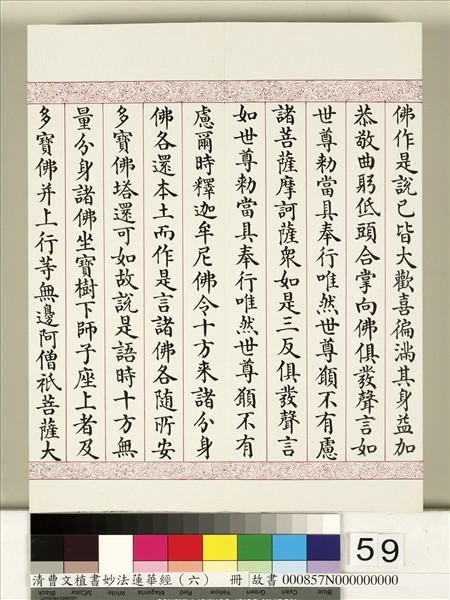 佛作是說已皆大歡喜徧滿其身益加
恭敬曲躬低頭合掌向佛俱發聲言如
世尊勅當具奉行唯然世尊願不有慮
諸菩薩摩訶薩衆如是三反俱發聲言
如世尊勅當具奉行唯然世尊願不有
慮爾時釋迦牟尼佛令十方來諸分身
佛各還本土而作是言諸佛各隨所安
多寶佛塔還可如故說是語時十方無
量分身諸佛坐寶樹下師子座上者及
多寶佛并上行等無邊阿僧祇菩薩大
59
清曹文植書妙法蓮華經（六） 冊 故書 000857N000000000